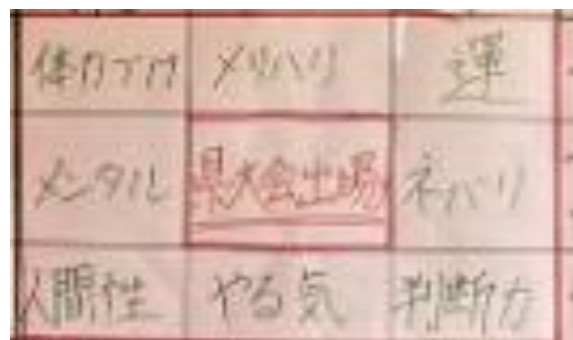 体力づけ メリハリ 運
メンタル 県大会出場 ネバリ
人間性 やる気 判断力